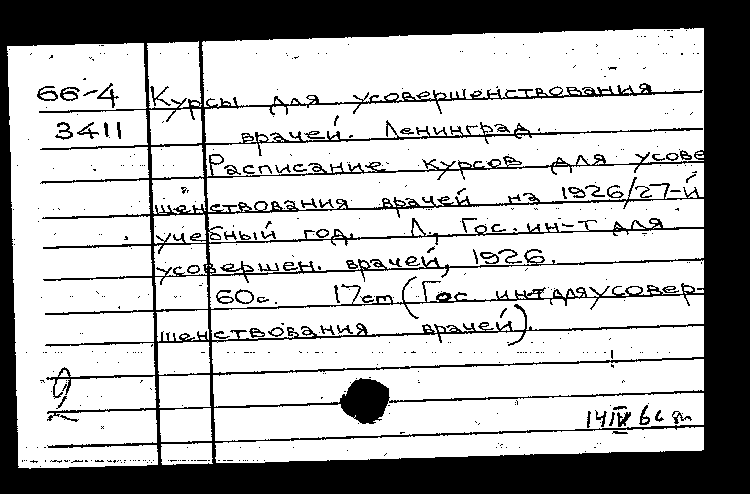 66-4 Курсы для усовершенствования
3411 врачей. Ленинград.
Расписание курсов для усове
шенствования врачей на 1926/27-й
учебный год. Л., Гос. ин-т для
усовершен. врачей, 1926.
60с. 17cm (Гос инт для усовер-
шенствования врачей).
14 IV 66